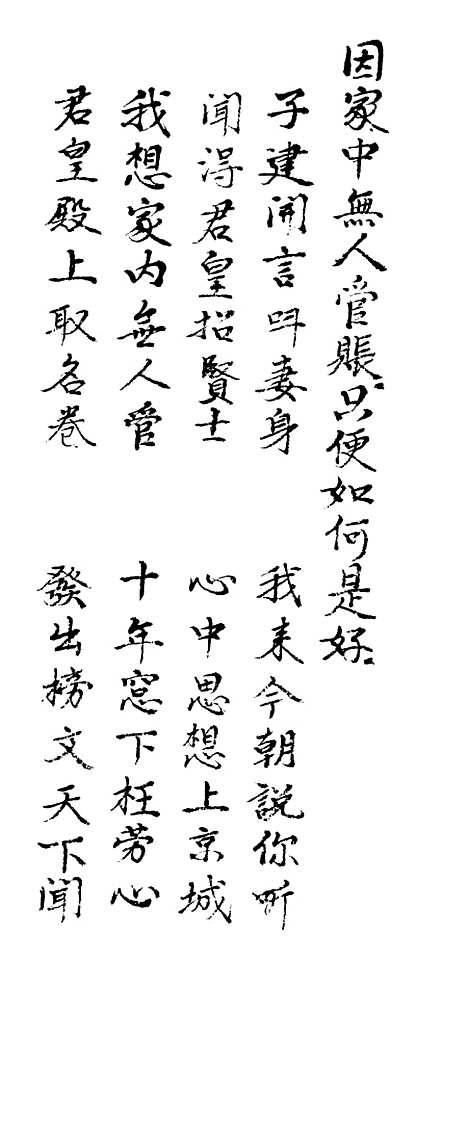 因家中無人管賬只便如何是好
子建開言呌妻身 我来今朝說你听
聞淂君皇招賢士 心中思想上京城
我想家内無人管 十年窓下枉劳心
君皇殿上取名卷 發出榜文天下聞